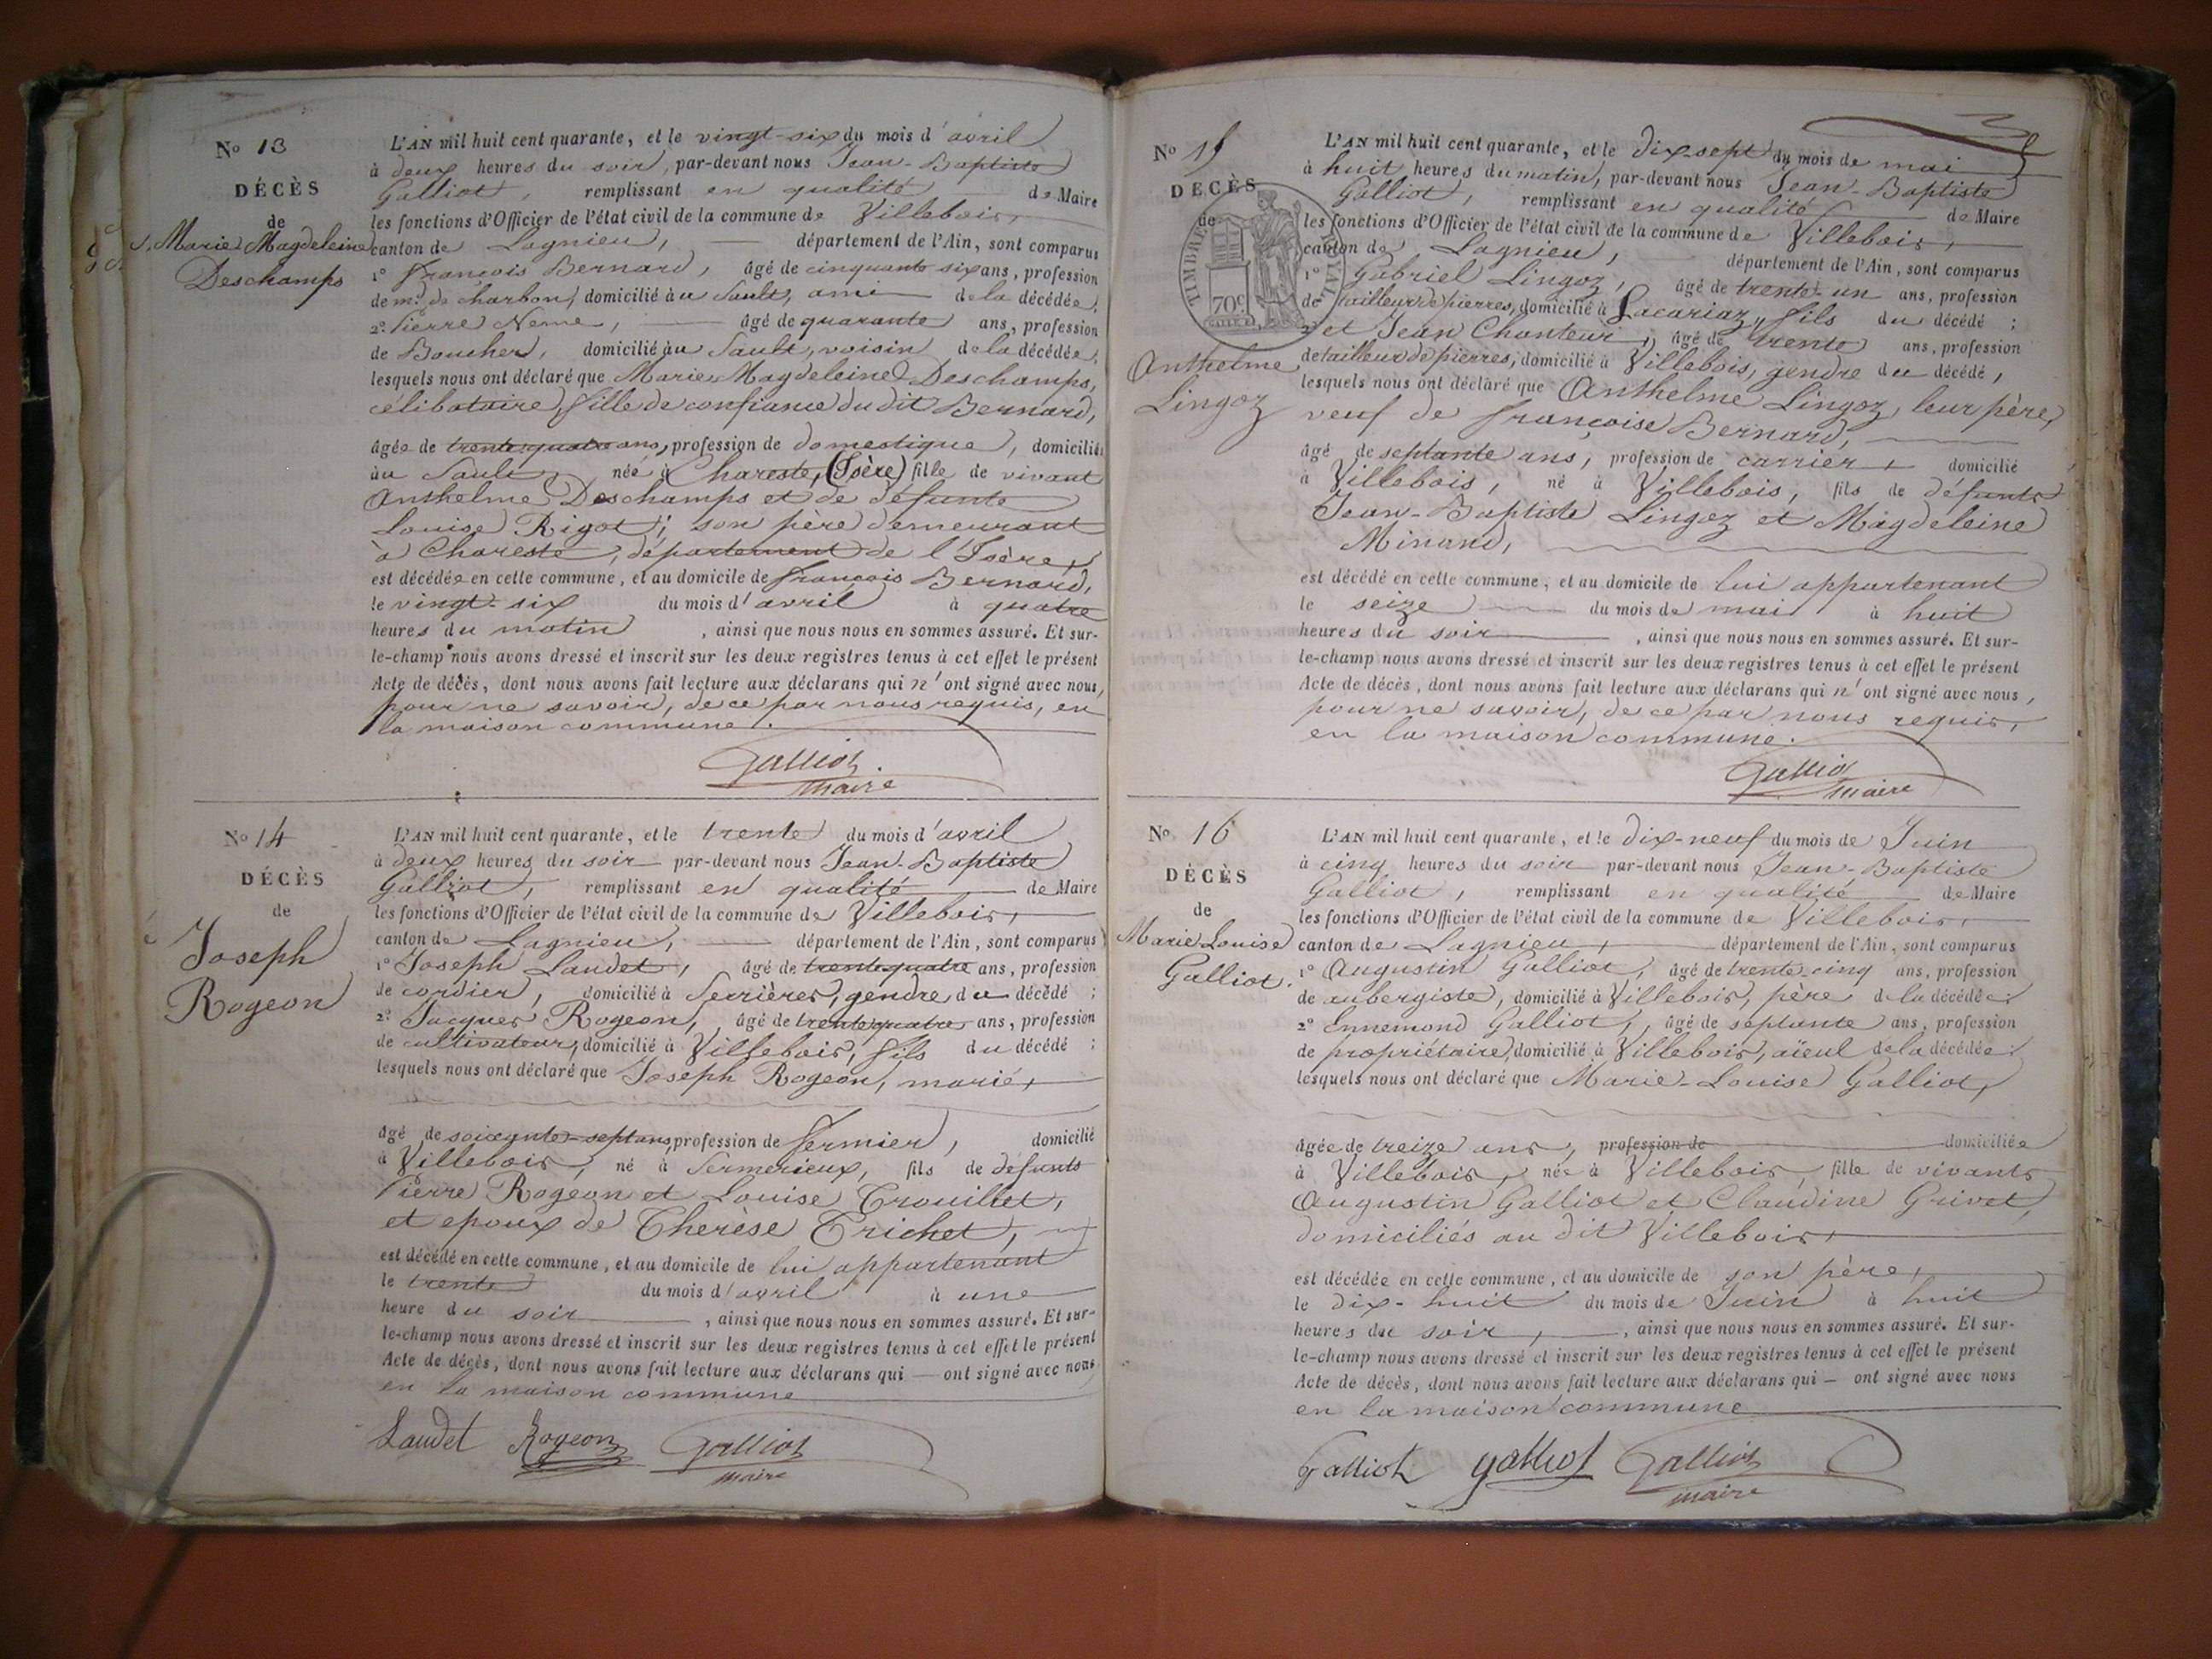 No 13
DÉCÈS
de
Marie Magdeleine
Deschamps
L'AN mil huit cent quarante, et le vingt-six du mois d'avril
à deux heures du soir, par-devant nous Jean-Baptiste
Galliot, remplissant en qualité de Maire
les fonctions d'Officier de l'état civil de la commune de Villebois,
canton de Lagnieu, département de l'Ain, sont comparus
1° François Bernard, âgé de cinquante six ans, profession
de md. de charbon, domicilié àu Sault, ami de la décédée,
2° Pierre Neme, âgé de quarante ans, profession
de Boucher, domicilié àu Sault, voisin de la décédée,
lesquels nous ont déclaré que Marie Magdeleine Deschamps,
célibataire, fille de confiance du dit Bernard,
âgée de trente quatre ans, profession de domestique, domiciliée
àu Sault, née à Chareste, (Isère) fille de vivant
Anthelme Deschamps et de défunte
Louise Rigot; son père demeurant
à Chareste, département de l'Isère,
est décédée en cette commune, et au domicile de françois Bernard,
le vingt-six du mois d'avril à quatre
heures du matin, ainsi que nous nous en sommes assuré. Et sur-
le-champ nous avons dressé et inscrit sur les deux registres tenus à cet effet le présent
Acte de décès, dont nous avons fait lecture aux déclarans qui n'ont signé avec nous,
pour ne savoir, de ce par nous requis, en
la maison commune.
Galliot
maire
No 14
DÉCÈS
de
Joseph
Rogeon
L'AN mil huit cent quarante, et le trente du mois d'avril
à deux heures du soir par-devant nous Jean-Baptiste
Galliot, remplissant en qualité de Maire
les fonctions d'Officier de l'état civil de la commune de Villebois,
canton de Lagnieu, département de l'Ain, sont comparus
1° Joseph Laudet, âgé de trente quatre ans, profession
de cordier, domicilié à Serrières, gendre du décédé ;
2° Jacques Rogeon, âgé de trente quatre ans, profession
de cultivateur, domicilié à Villebois, fils du décédé ;
lesquels nous ont déclaré que Joseph Rogeon, marié,
âgé de soixante-sept ans, profession de fermier, domicilié
à Villebois, né à Sermerieux, fils de défunts
Pierre Rogeon et Louise Trouillet,
et epoux de Therèse Trichet,
est décédé en cette commune, et au domicile de lui appartenant
le trente du mois d'avril à une
heure du soir, ainsi que nous nous en sommes assuré. Et sur-
le-champ nous avons dressé et inscrit sur les deux registres tenus à cet effet le présent
Acte de décès, dont nous avons fait lecture aux déclarans qui — ont signé avec nous,
en la maison commune
Laudet Rogeon Galliot
maire
No 15
DÉCÈS
de
TIMBRE ROYAL
70c
Anthelme
Lingoz
L'AN mil huit cent quarante, et le dix-sept du mois de mai
à huit heures du matin, par-devant nous Jean-Baptiste
Galliot, remplissant en qualité de Maire
les fonctions d'Officier de l'état civil de la commune de Villebois,
canton de Lagnieu, département de l'Ain, sont comparus
1° Gabriel Lingoz, âgé de trente-un ans, profession
de tailleur de pierres, domicilié à Lacariaz, fils du décédé ;
2° et Jean Chanteur, âgé de trente ans, profession
de tailleur de pierres, domicilié à Villebois, gendre du décédé,
lesquels nous ont déclaré que Anthelme Lingoz, leur père,
veuf de françoise Bernard,
âgé de septante ans, profession de carrier, domicilié
à Villebois, né à Villebois, fils de défunts
Jean-Baptiste Lingoz et Magdeleine
Minand,
est décédé en cette commune, et au domicile de lui appartenant
le seize du mois de mai à huit
heures du soir, ainsi que nous nous en sommes assuré. Et sur-
le-champ nous avons dressé et inscrit sur les deux registres tenus à cet effet le présent
Acte de décès, dont nous avons fait lecture aux déclarans qui n'ont signé avec nous,
pour ne savoir, de ce par nous requis,
en la maison commune.
Galliot
maire
No 16
DÉCÈS
de
Marie Louise
Galliot.
L'AN mil huit cent quarante, et le dix-neuf du mois de Juin
à cinq heures du soir par-devant nous Jean-Baptiste
Galliot, remplissant en qualité de Maire
les fonctions d'Officier de l'état civil de la commune de Villebois,
canton de Lagnieu, département de l'Ain, sont comparus
1° Augustin Galliot, âgé de trente-cinq ans, profession
de aubergiste, domicilié à Villebois, père de la décédée
2° Ennemond Galliot, âgé de septante ans, profession
de propriétaire, domicilié à Villebois, aïeul de la décédée
lesquels nous ont déclaré que Marie-Louise Galliot,
âgée de treize ans, profession de domiciliée
à Villebois, née à Villebois, fille de vivants
Augustin Galliot et Claudine Grivet,
domiciliés au dit Villebois,
est décédée en cette commune, et au domicile de son père,
le dix-huit du mois de Juin à huit
heures du soir, ainsi que nous nous en sommes assuré. Et sur-
le-champ nous avons dressé et inscrit sur les deux registres tenus à cet effet le présent
Acte de décès, dont nous avons fait lecture aux déclarans qui — ont signé avec nous
en la maison commune
Galliot galliot Galliot
maire